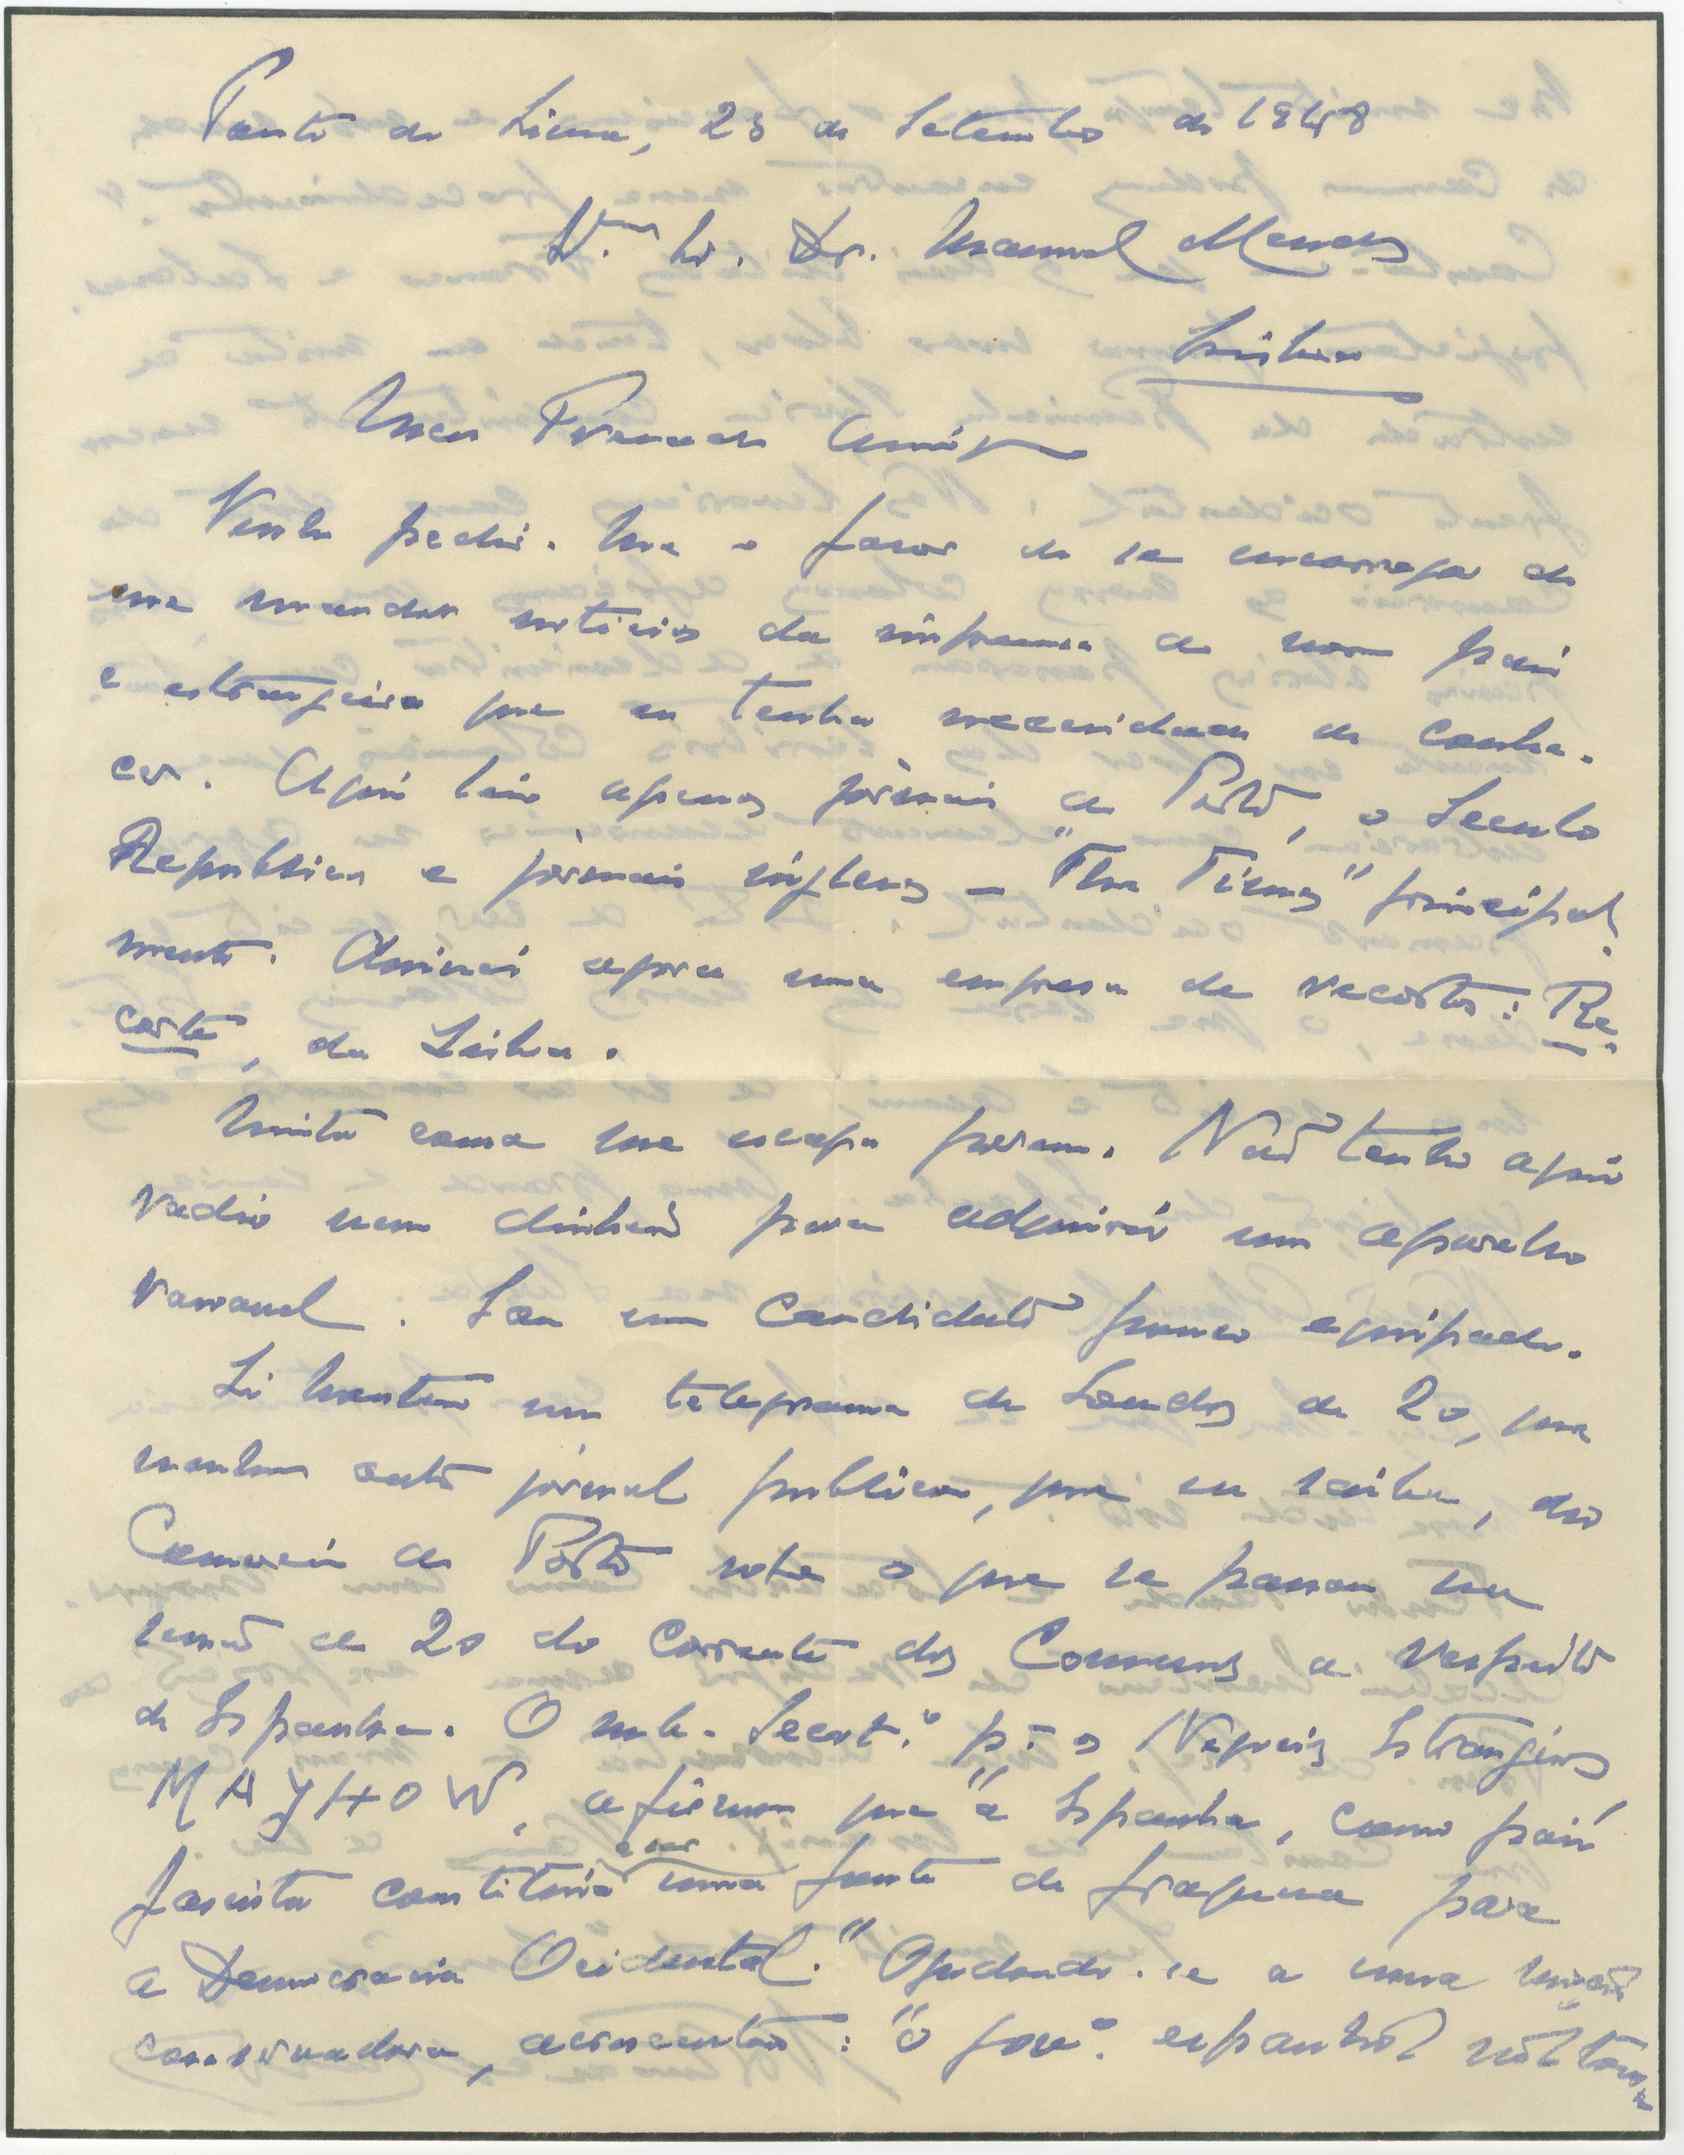 Ponte de Lima, 23 de Setembro de 1948
Sr. Dr. Manuel Mendes
Lisboa
Meu Prezado Amigo
Venho pedir-lhe o favor de se encarregar de
me mandar noticias da imprensa do nosso pais
e estrangeira que eu tenha necessidade de conhe-
cer. Aqui leio apenas jornais do Porto, o Seculo
Republica e jornais inglezes - "The Times" principal-
mente. Assinei agora uma empresa de recortes: Re-
corte, de Lisboa.
Muita cousa me escapa porem. Não tenho aqui
radio nem dinheiro para adquirir um aparelho
razoavel. Sou um candidato pouco equipado.
Li hontem um telegrama de Londres de 20, que
nenhum outro jornal publicou, que eu saiba, do
Comercio do Porto sobre o que se passou na
sessão de 20 do corrente dos Comuns a respeito
de Espanha. O sub-Secret.º pª os Negocios Estrangeiros
MAYHOW, afirmou que "a Espanha, como país
fascista constituia a seu ver uma fonte de fraqueza para
a Democracia Ocidental." Opondo-se a uma moção
conservadora, acrescentou: "o govº. espanhol